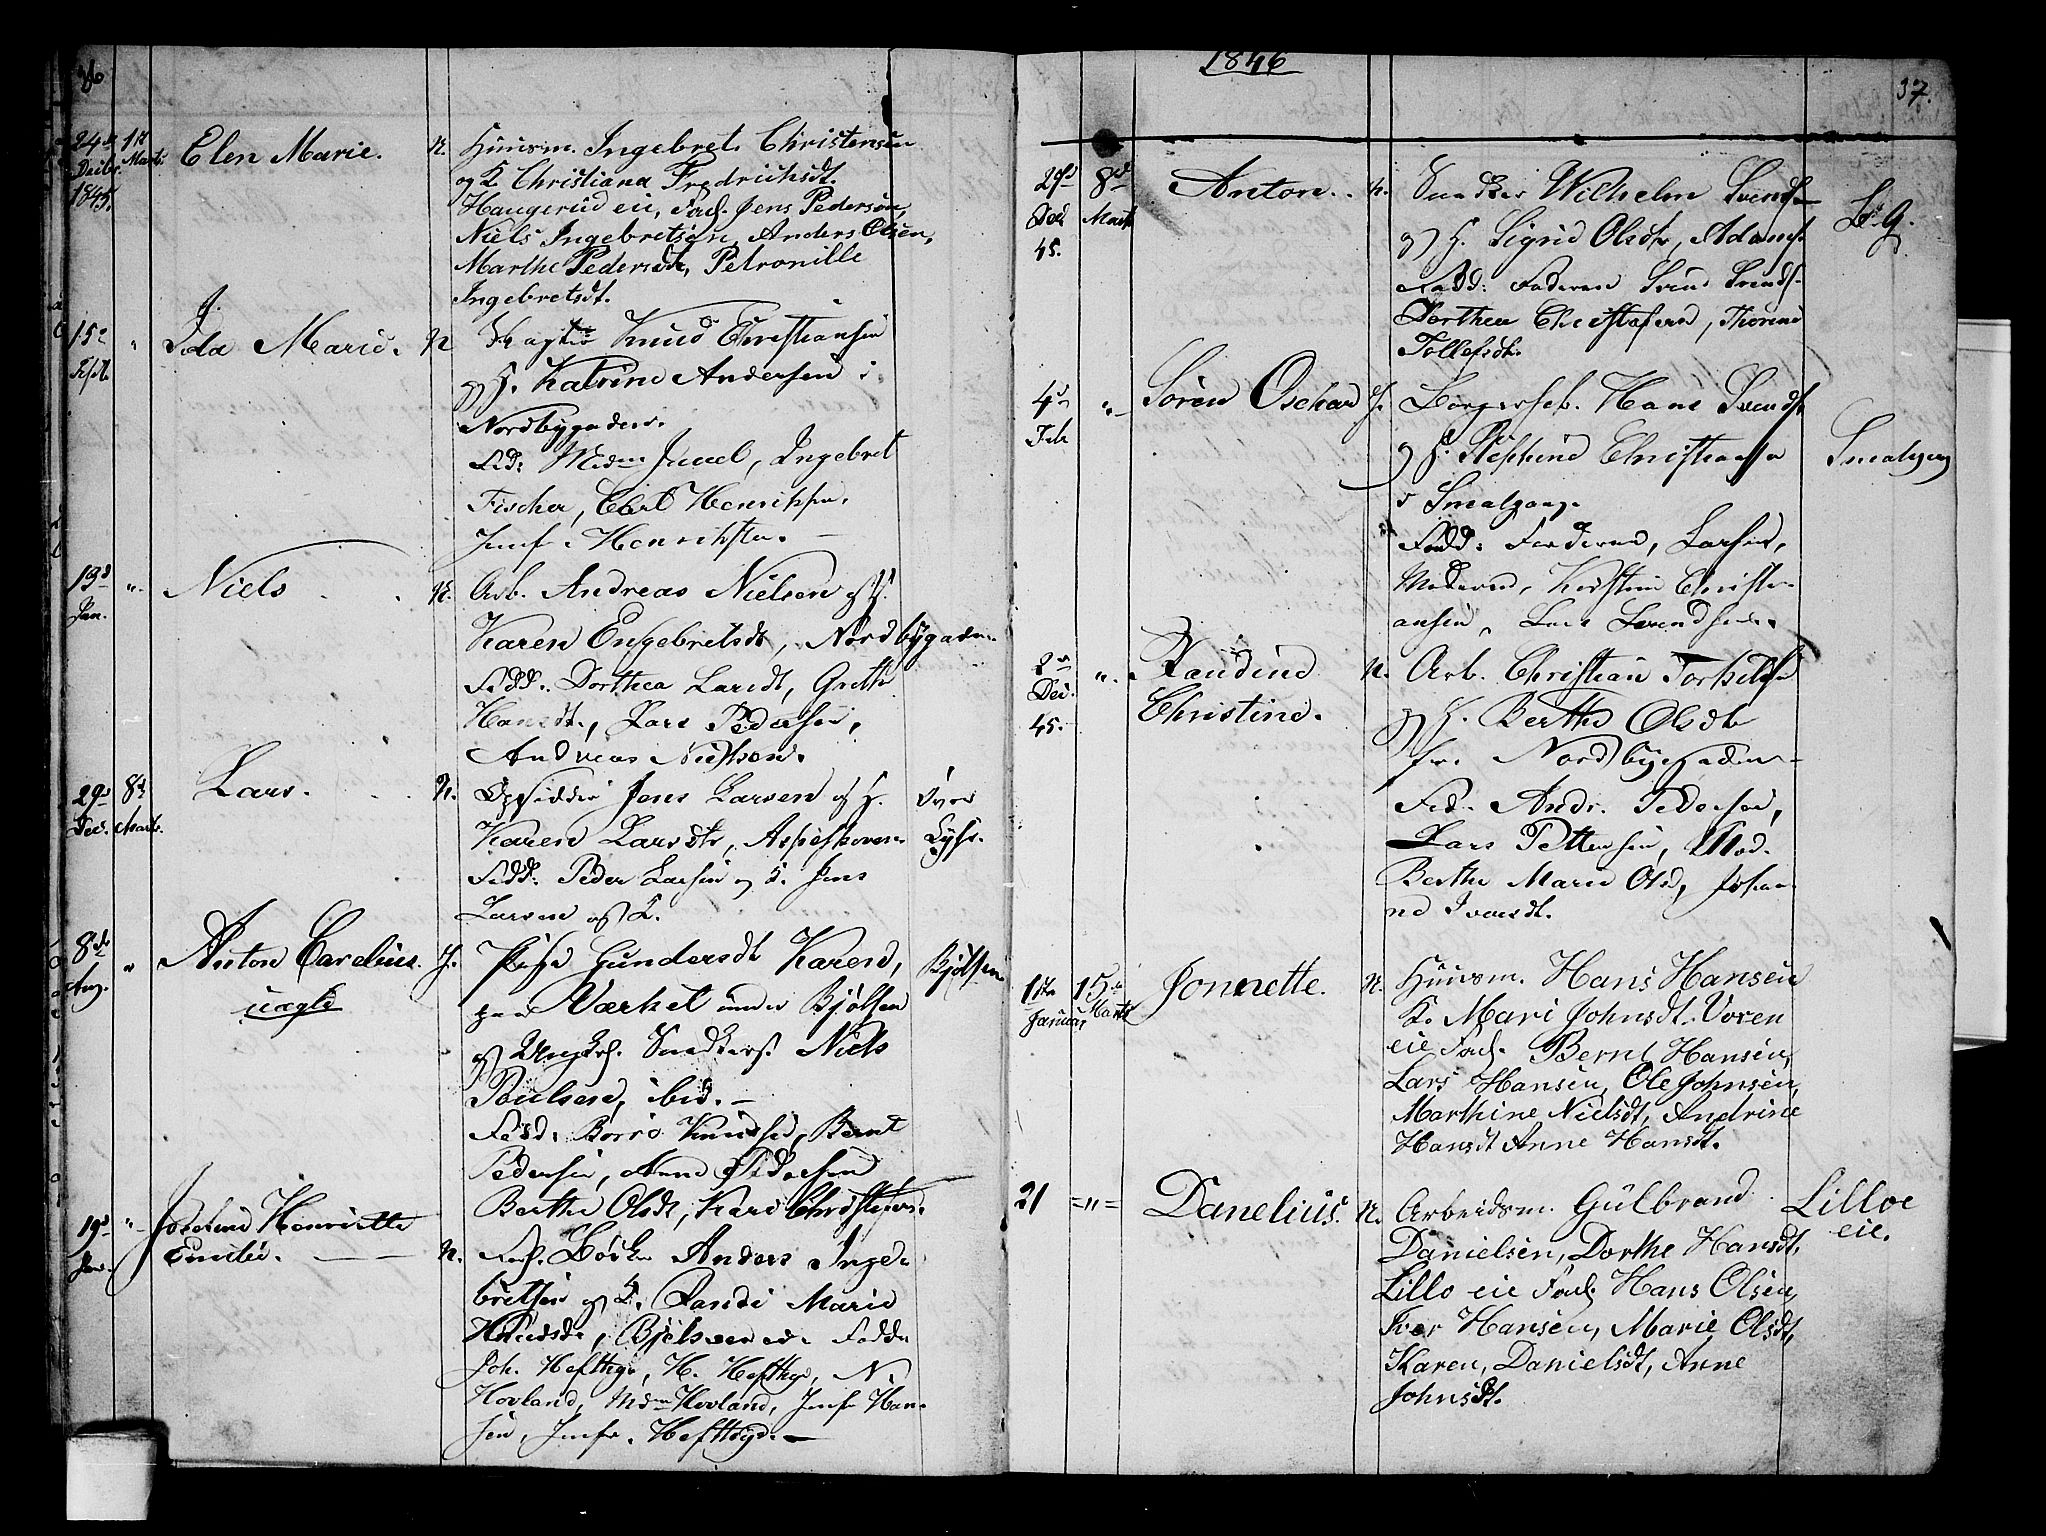 36
24de
Decbr
1845.
1st
Marts
Elen Marie.
n.
Huusm. Ingebret Christensen
og K. Christiana Fredrichsdt.
Haugerud eie, Fad. Jens Pedersøn,
Niels Ingebretsøn, Anders Olsen,
Marthe Pedersdt, Petronille
Ingebretsdt.
15
Febr.
"
Ida Marie.
n
Knud Christiansen
og H. Katrine Andersen i
Nordbygaden.
Fad: Mdm Juuel, Ingebret
Fischer, Carl Henriksen,
Jomf. Henriksen.
13d
Jan.
"
Niels
n.
Arb. Andreas Nielsen og H.
Karen Engebretsdt, Nordbygaden
Fadd. Dorthea Larsdt, Grethe
Hansdt., Lars Pedersen,
Andreas Nielsen.
29d
Dec.
8d
Marts
Lars.
n.
Opsidder Jens Larsen og H.
Karen Larsdtr, Aspeskoven
Fadd. Peder Larsen og H. Jens
Larsen og K.
8de
Aug.
"
Anton Carelius
uægte
H.
Pige Gundersdt Karen,
paa Værket under Bjølsen
og Ungk. Snedkers. Niels
Poulsen, ibid.
Fad: Borre Knudsen, Bernt
Pedersen, Anne Pedersen
Berthe Olsdt, Kari Christophers.
Bjølsen
19d
Jan.
"
Josefine Henriette
Emilie.
n.
Anders Inge-
bretsen og K. Randi Marie
Knudsdt, Bjølsen eie Fadd.
Joh. Hefthye, H. Hefthye, N.
Hovland, Mdm Hovland, Jomf Han-
sen, Jomfr. Hefthye.
1846
37.
29d
Dec
45.
8d
Marts
Anton.
n.
Snedker Wilhelm Svends
og H. Sigrid Olsdtr, Adams
Fadd: Faderen Svend Svends.
Dorthea Christophersd, Thorine
Tollefsdt.
4d
Feb
"
Søren Oschar
H.
Borgersk. Hans Svends
og H. Christiansen
i Smalgang.
Fadd: Faderen, Larsen,
Moderen, Kirstine Christi-
ansen, Lars Svendsen.
Smalgang
2n
Dec.
45.
"
Randine
Christine.
n.
Arb. Christian Torkilds
og H. Berthe Olsdt
fr. Nordbyegaden
Fad. Andr. Pedersen,
Lars Pettersen, Mod.
Berthe Marie Olsd, Johan-
ne Ivarsdt.
1ste
Januar
15de
Marts
Jonnette.
n.
Huusm. Hans Hansen
K. Mari Johnsdt. Voxen
eie Fad. Bernt Hansen,
Lars Hansen, Ole Johnsen,
Marthine Nielsdt, Andrine
Hansdt Anne Hansdt.
21
="=
Danelius.
n.
Arbeidsm. Gulbrand
Danielsen, Dorthe Hansdt,
Lillo eie Fad. Hans Olsen,
Iver Hansen, Marie Olsdt,
Karen, Danielsdt, Anne
Johnsdt.
Lilloe
eie.